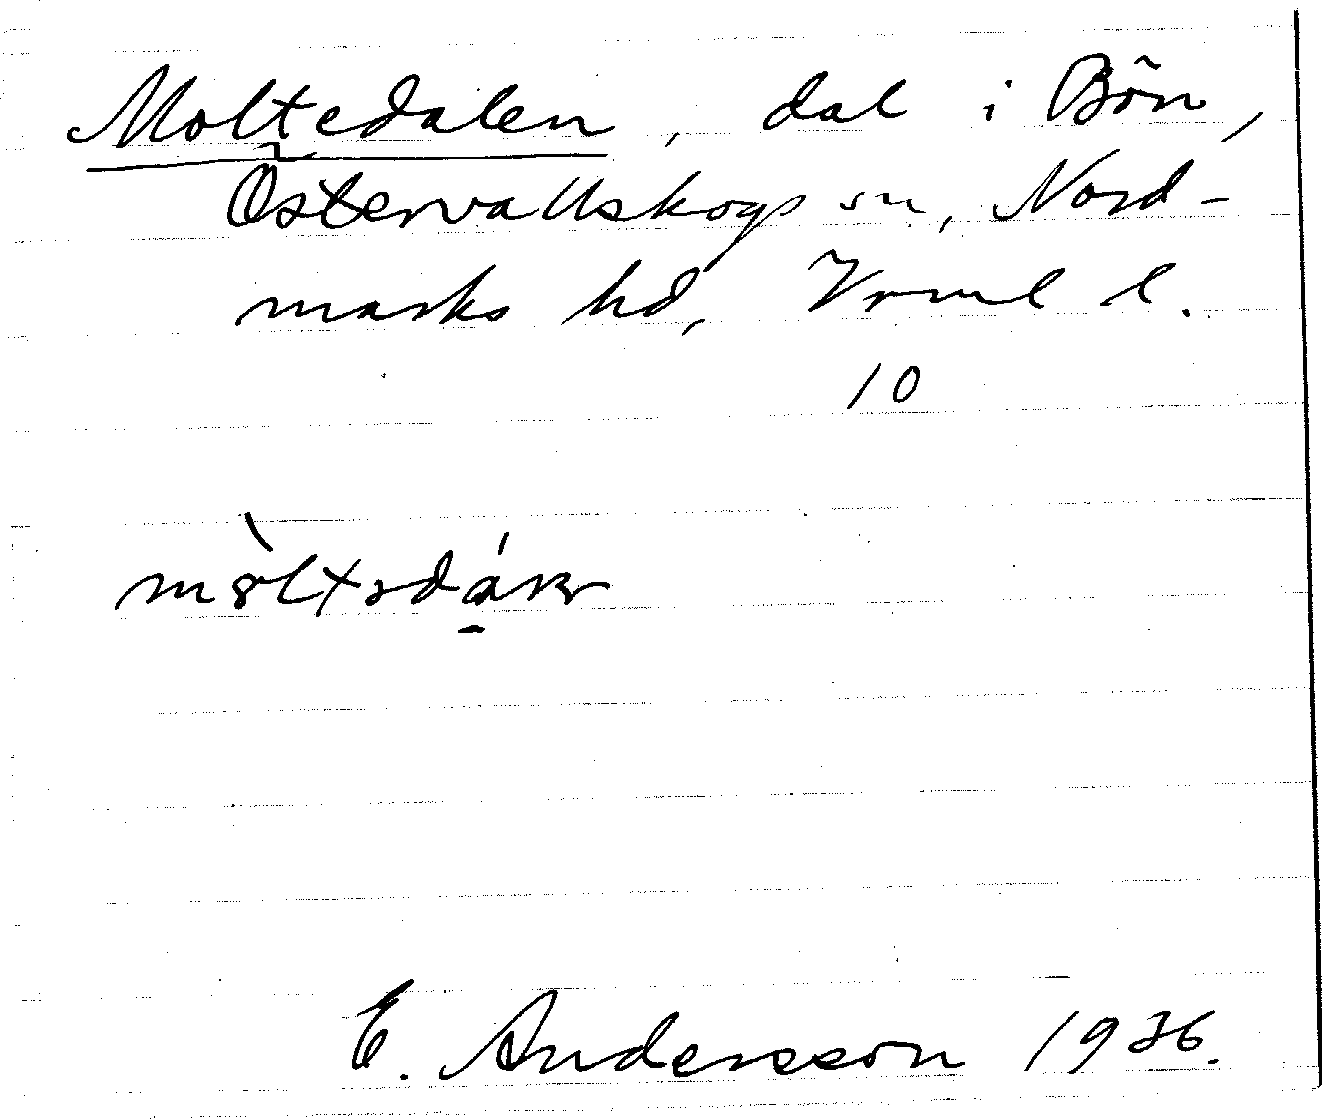 Moltedalen, dal i Bön,
Östervallskogs sn, Nord-
marks hd, Vrml l.
10
E. Andersson 1936.